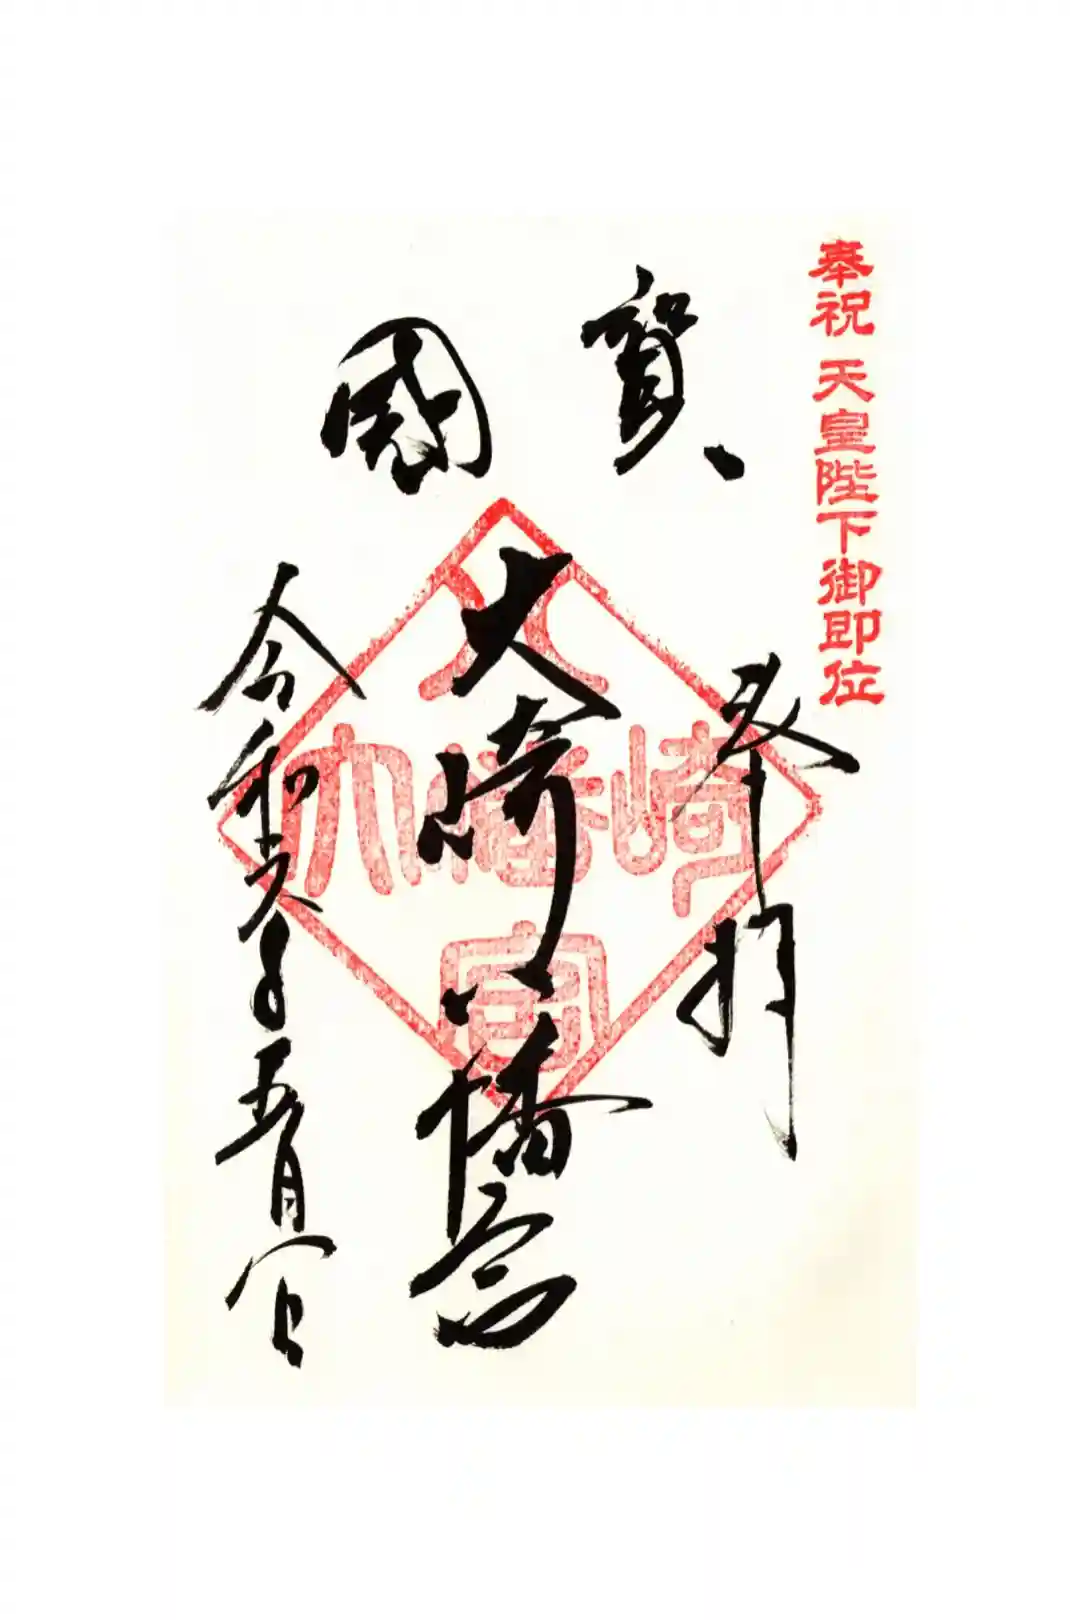 奉祝 天皇陛下御即位
賀國
奉拝
大崎八幡宮
大崎八幡宮
令和元年五月